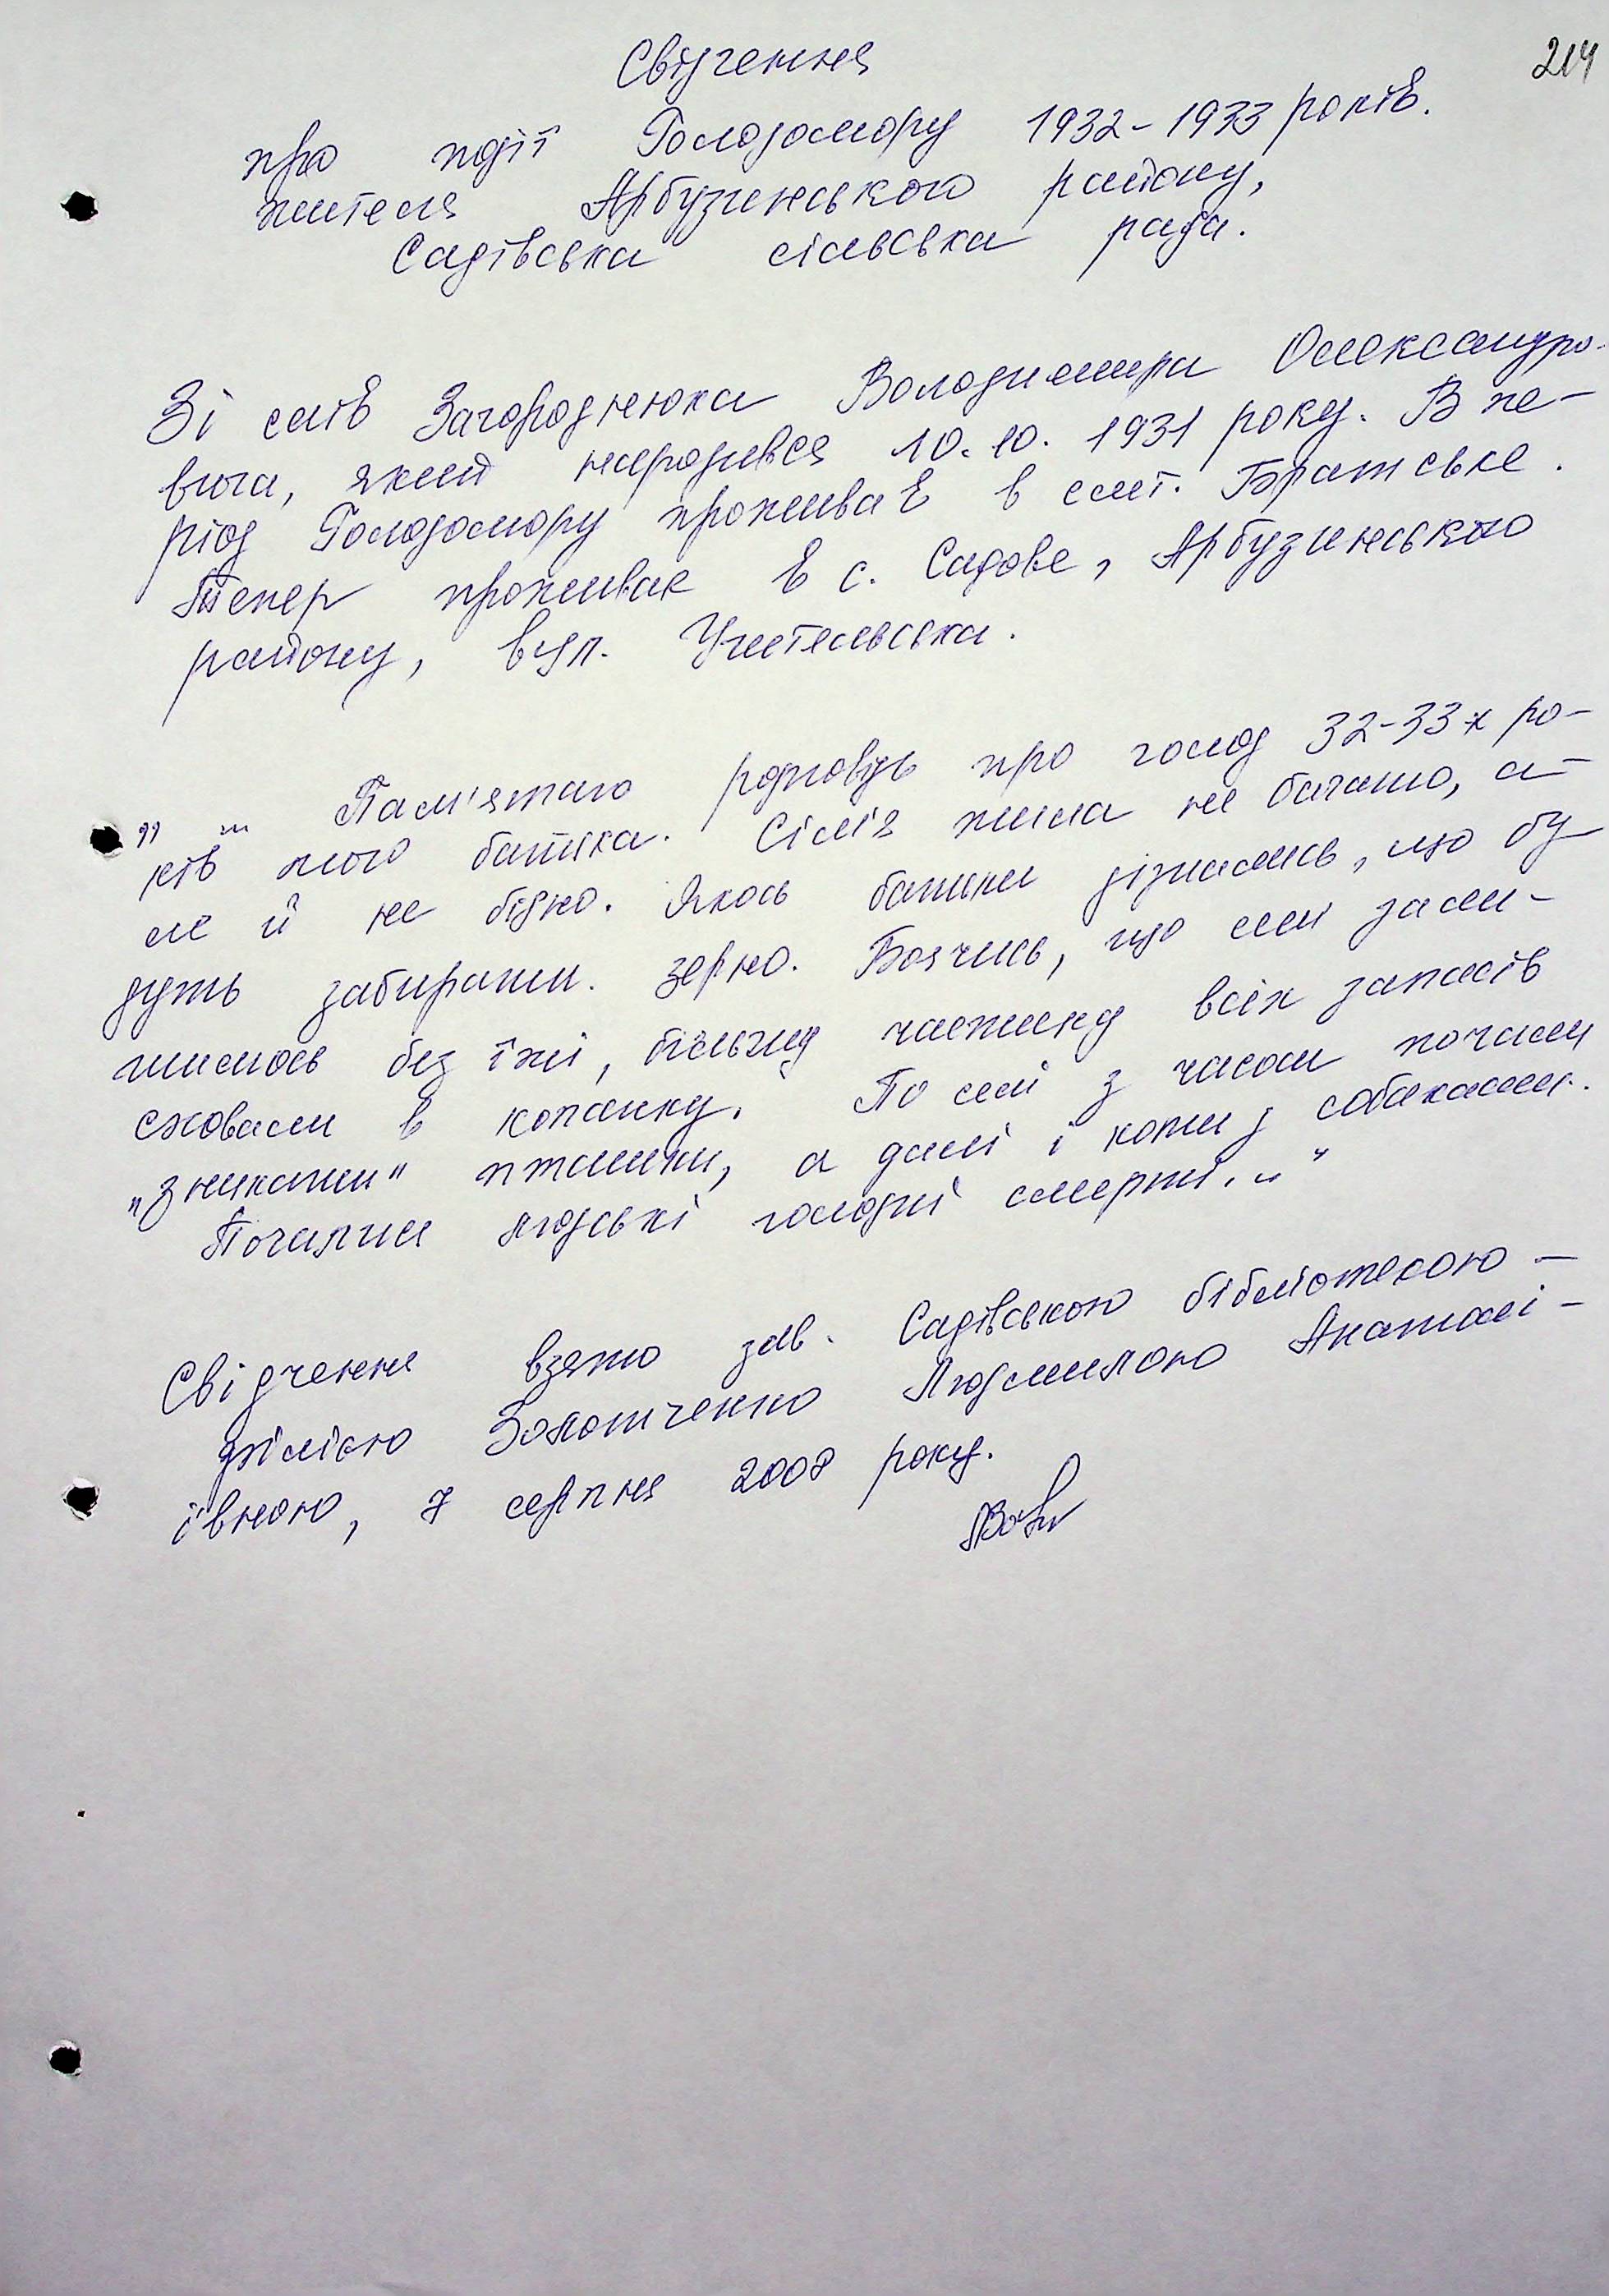 214
Свідчення
про події Голодомору 1932-1933 років.
жителя Арбузинського району,
Садівська сільська рада.
Зі слів Загороднюка Володимира Олександро-
вича, який народився 10.10.1931 року. В пе-
ріод Голодомору проживав в смт. Братське.
Тепер проживає в с. Садове, Арбузинського
району, вул. Учительська.
„ ... Пам'ятаю розповідь про голод 32-33х ро-
ків мого батька. Сім'я жила не багато, а-
ле й не бідно. Якось батьки дізнались, що бу-
дуть забирати зерно. Боячись, що сім'ї зали-
шилось без їжі, більшу частину всіх запасів
сховали в копанку. По селі з часом почали
„зникати" пташки, а далі і коти з собаками.
Почалися людські голодні смерті..."
Свідчення взято зав. Садівською бібліотекою -
філією Золотченко Людмилою Анатолі-
ївною, 7 серпня 2008 року.